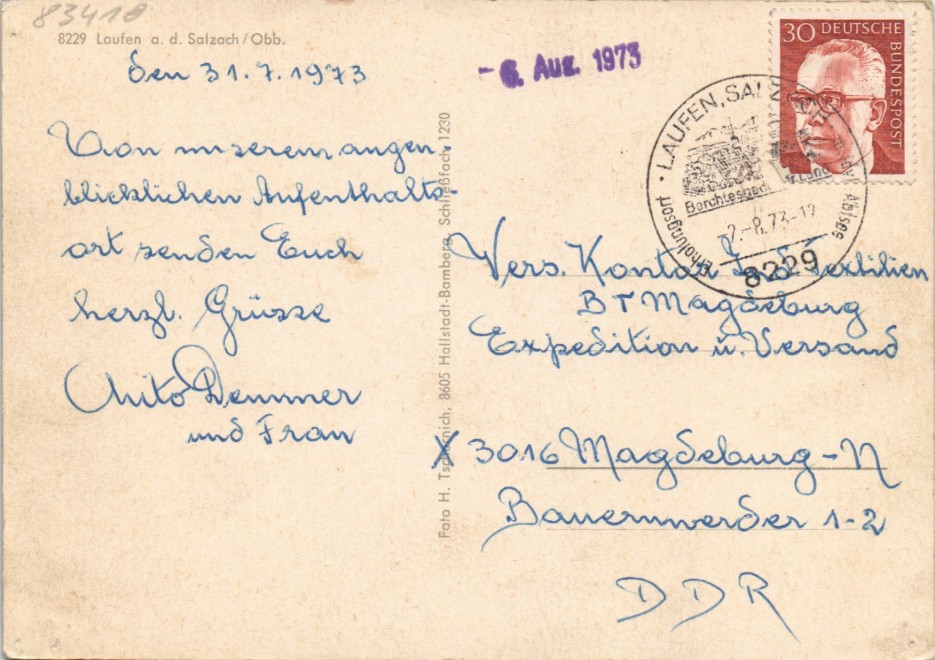 83410
8229 Laufen a. d. Salzach/Obb.
den 31.7.1973
Von unserem augen-
blicklichen Aufenthalts-
ort senden Euch
herzl. Grüsse
Demmer
und Frau
Foto H. Tschanich, 8605 Hallstadt-Bamberg, Schließfach 1230
- 6. Aug. 1973
30 DEUTSCHE BUNDESPOST
LAUFEN, SALZ
Erholungsort
Abtsee
-2.-8.73-12
8229
Vers. Kontor Ind Textilien
BT Magdeburg
Expedition u. Versand
X 3016 Magdeburg-N
Bauernwerder 1-2
DDR